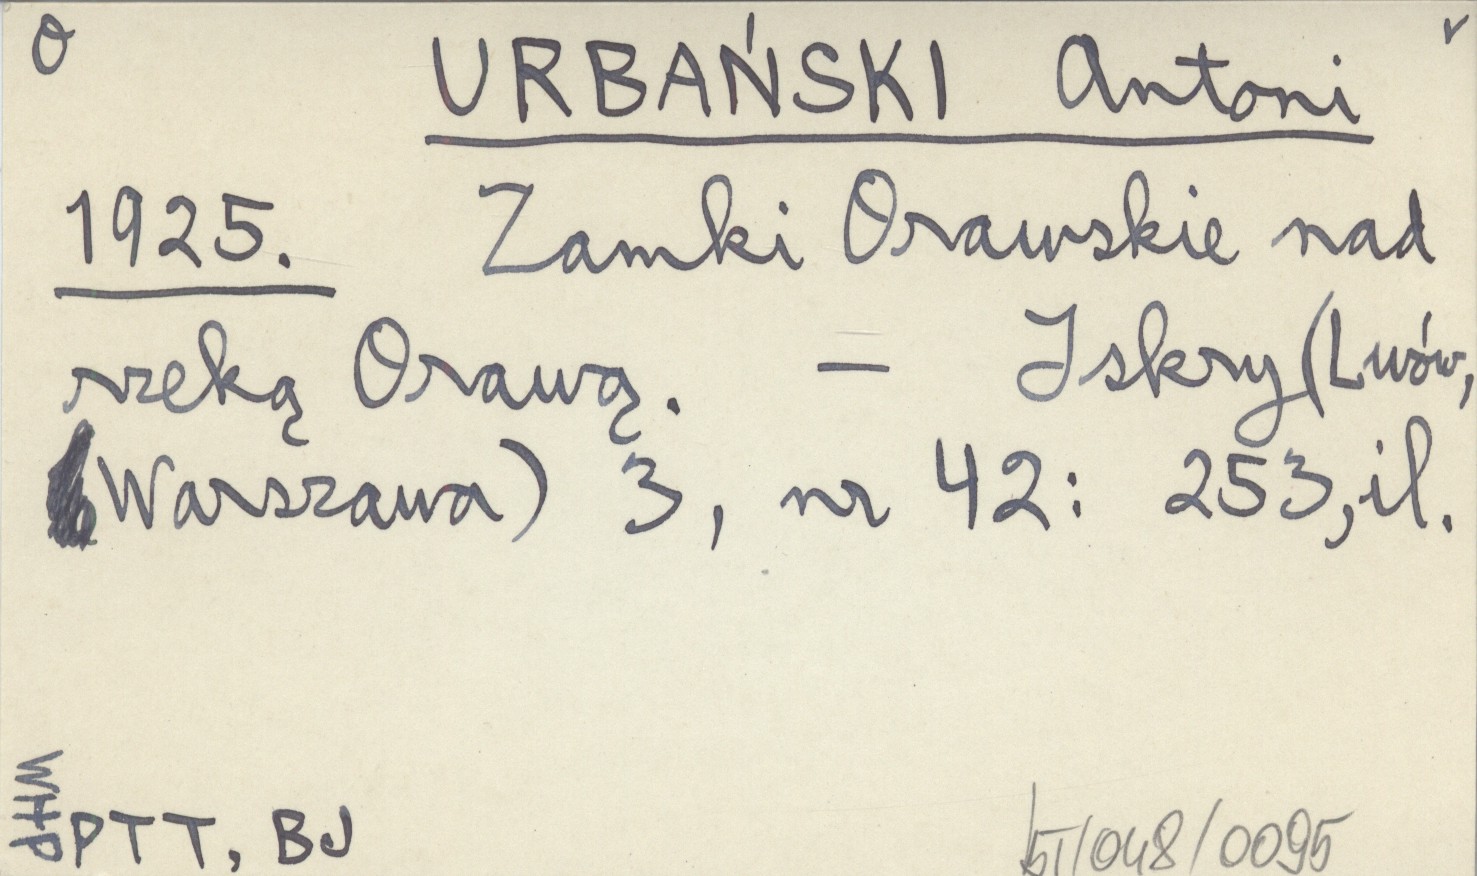 O URBAŃSKI Antoni v
1925. Zamki Orawskie nad
rzeką Orawą. — Iskry (Lwów,
Warszawa) 3, nr 42: 253, il.
WHP
PTT, BJ
/048/0095